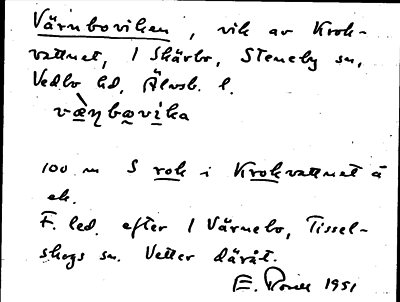 Värnboviken, vik av Krok-
vattnet, 1 Skärbo, Steneby sn,
Vedbo hd, Älvsb. l.
væ̀ꞃbo̤vika
100 m S rok i Krokvattnet å
ek.
F. led. efter 1 Värnebo, Tissel-
skogs sn. Vetter ditåt.
E. 1951